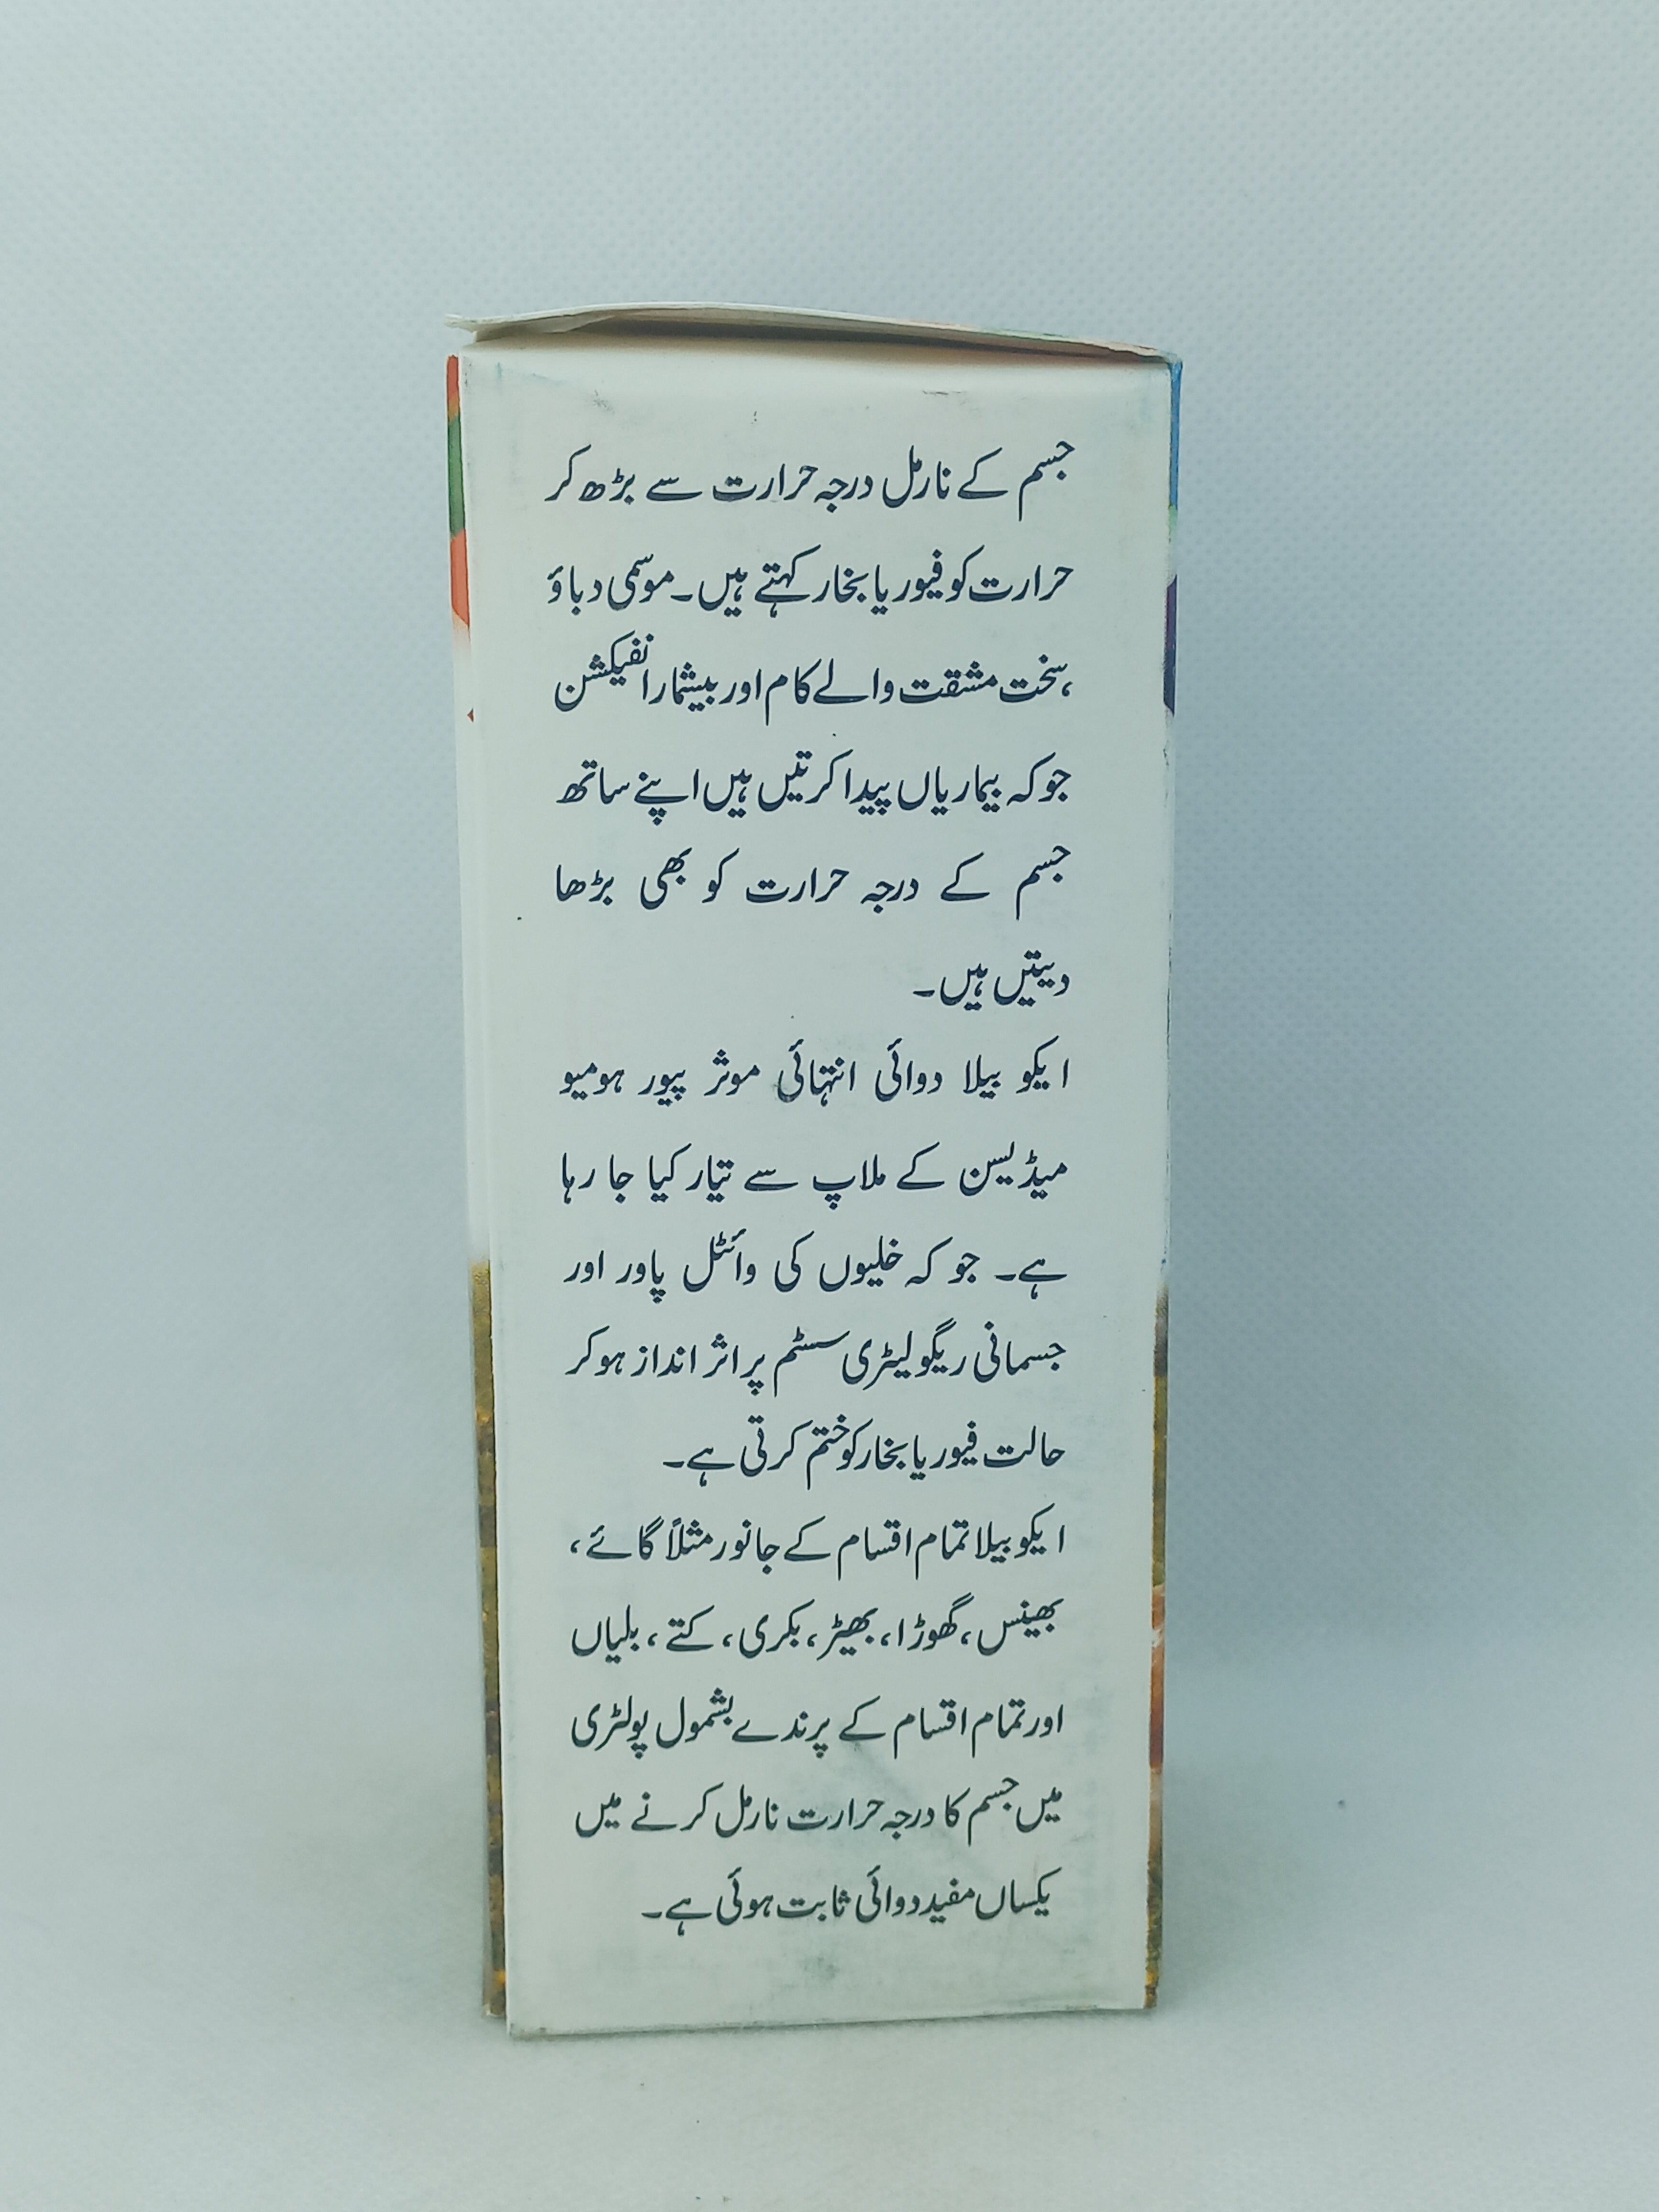 جسم کے نارمل درجہ حرارت سے بڑھ کر
حرارت کو فیور یا بخار کہتے ہیں۔ موسمی دباؤ
،سخت مشقت والے کام اور بیشمار انفیکشن
جو کہ بیماریاں پیدا کرتیں ہیں اپنے ساتھ
جسم کے درجہ حرارت کو بھی بڑھا
دیتیں ہیں۔
ایکو بیلا دوائی انتہائی موثر پیور ہومیو
میڈیسن کے ملاپ سے تیار کیا جا رہا
ہے۔ جو کہ خلیوں کی وائٹل پاور اور
جسمانی ریگولیٹری سسٹم پر اثر انداز ہو کر
حالت فیور یا بخار کو ختم کرتی ہے۔
ایکو بیلا تمام اقسام کے جانور مثلاً گائے،
بھینس، گھوڑا، بھیڑ، بکری، کتے، بلیاں
اور تمام اقسام کے پرندے بشمول پولٹری
میں جسم کا درجہ حرارت نارمل کرنے میں
یکساں مفید دوائی ثابت ہوئی ہے۔